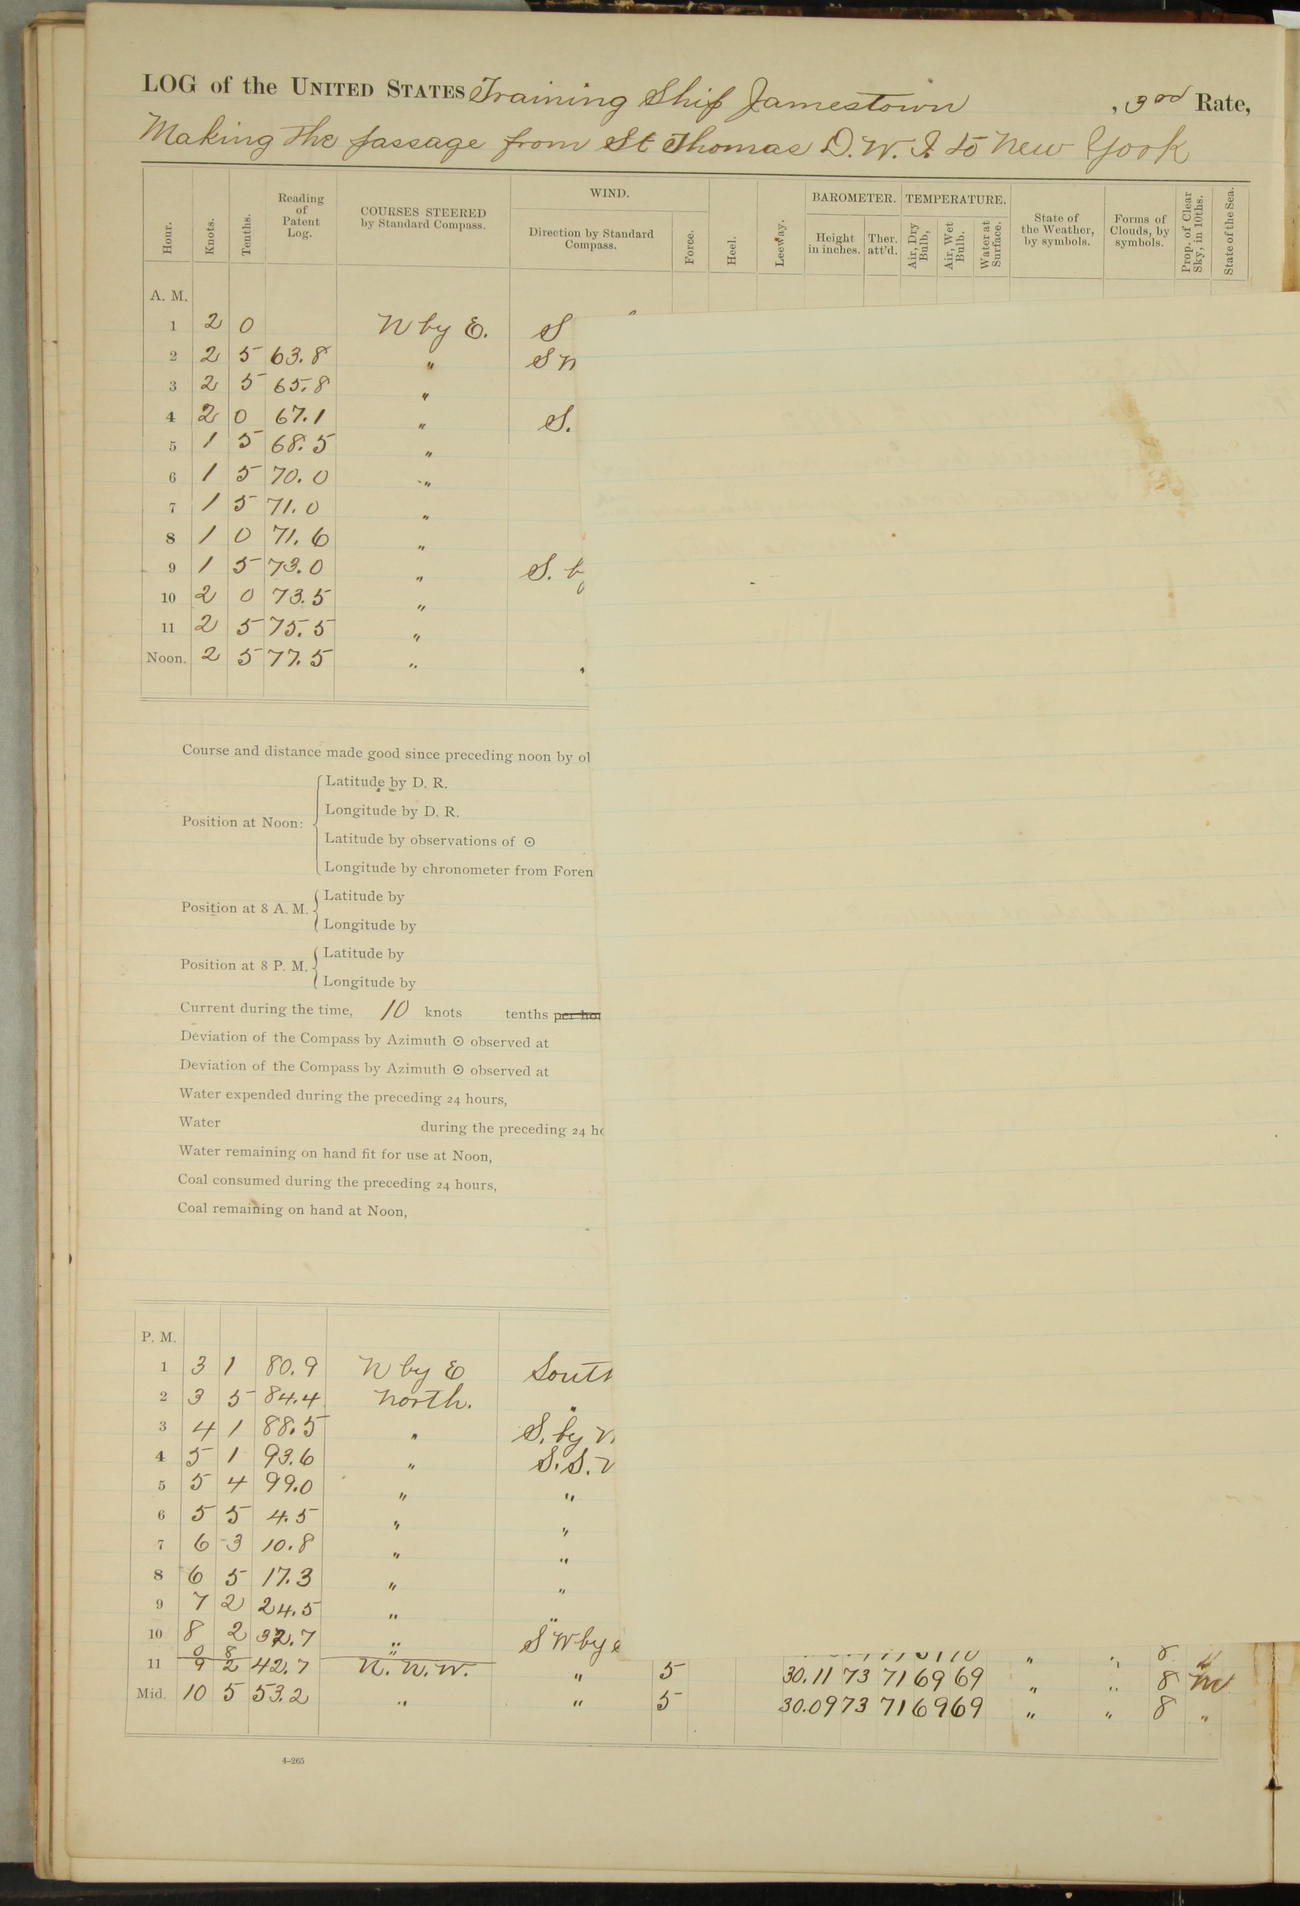 LOG of the UNITED STATES Training Ship Jamestown , 3rd Rate,
Making the passage from St Thomas D. W. I. to New York
Hour. Knots. Tenths. Reading of Patent Log. COURSES STEERED by Standard Compass. WIND. Direction by Standard Compass. Force. Heel. Leeway. BAROMETER. Height in inches. Ther. att'd. TEMPERATURE. Air, Dry Bulb, Air, Wet Bulb. Water at Surface. State of the Weather, by symbols. Forms of Clouds, by symbols. Prop. of Clear Sky, in 10ths. State of the Sea.
A. M.
1 2 0 N by E. S
2 2 5 63.8 "
3 2 5 65.8 "
4 2 0 67.1 " S.
5 1 5 68.5 "
6 1 5 70.0 "
7 1 5 71.0 "
8 1 0 71.6 "
9 1 5 73.0 " S. b
10 2 0 73.5 "
11 2 5 75.5 "
Noon. 2 5 77.5 "
Course and distance made good since preceding noon by ol
Position at Noon:
Latitude by D. R.
Longitude by D. R.
Latitude by observations of ⊙
Longitude by chronometer from Foren
Position at 8 A. M.
Latitude by
Longitude by
Position at 8 P. M.
Latitude by
Longitude by
Current during the time, 10 knots tenths per hou
Deviation of the Compass by Azimuth ⊙ observed at
Deviation of the Compass by Azimuth ⊙ observed at
Water expended during the preceding 24 hours,
Water during the preceding 24 ho
Water remaining on hand fit for use at Noon,
Coal consumed during the preceding 24 hours,
Coal remaining on hand at Noon,
P. M.
1 3 1 80.9 N by E South
2 3 5 84.4 North. "
3 4 1 88.5 " S. by
4 5 1 93.6 " S. S.
5 5 4 99.0 " "
6 5 5 4.5 " "
7 6 3 10.8 " "
8 6 5 17.3 " "
9 7 2 24.5 " "
10 8 2 32.7 " S W by
0 8 "
11 9 2 42.7 N. N. W. " 5 30.11 73 71 69 69 " " 8 M
Mid. 10 5 53.2 " " 5 30.09 73 71 69 69 " " 8 "
4-265